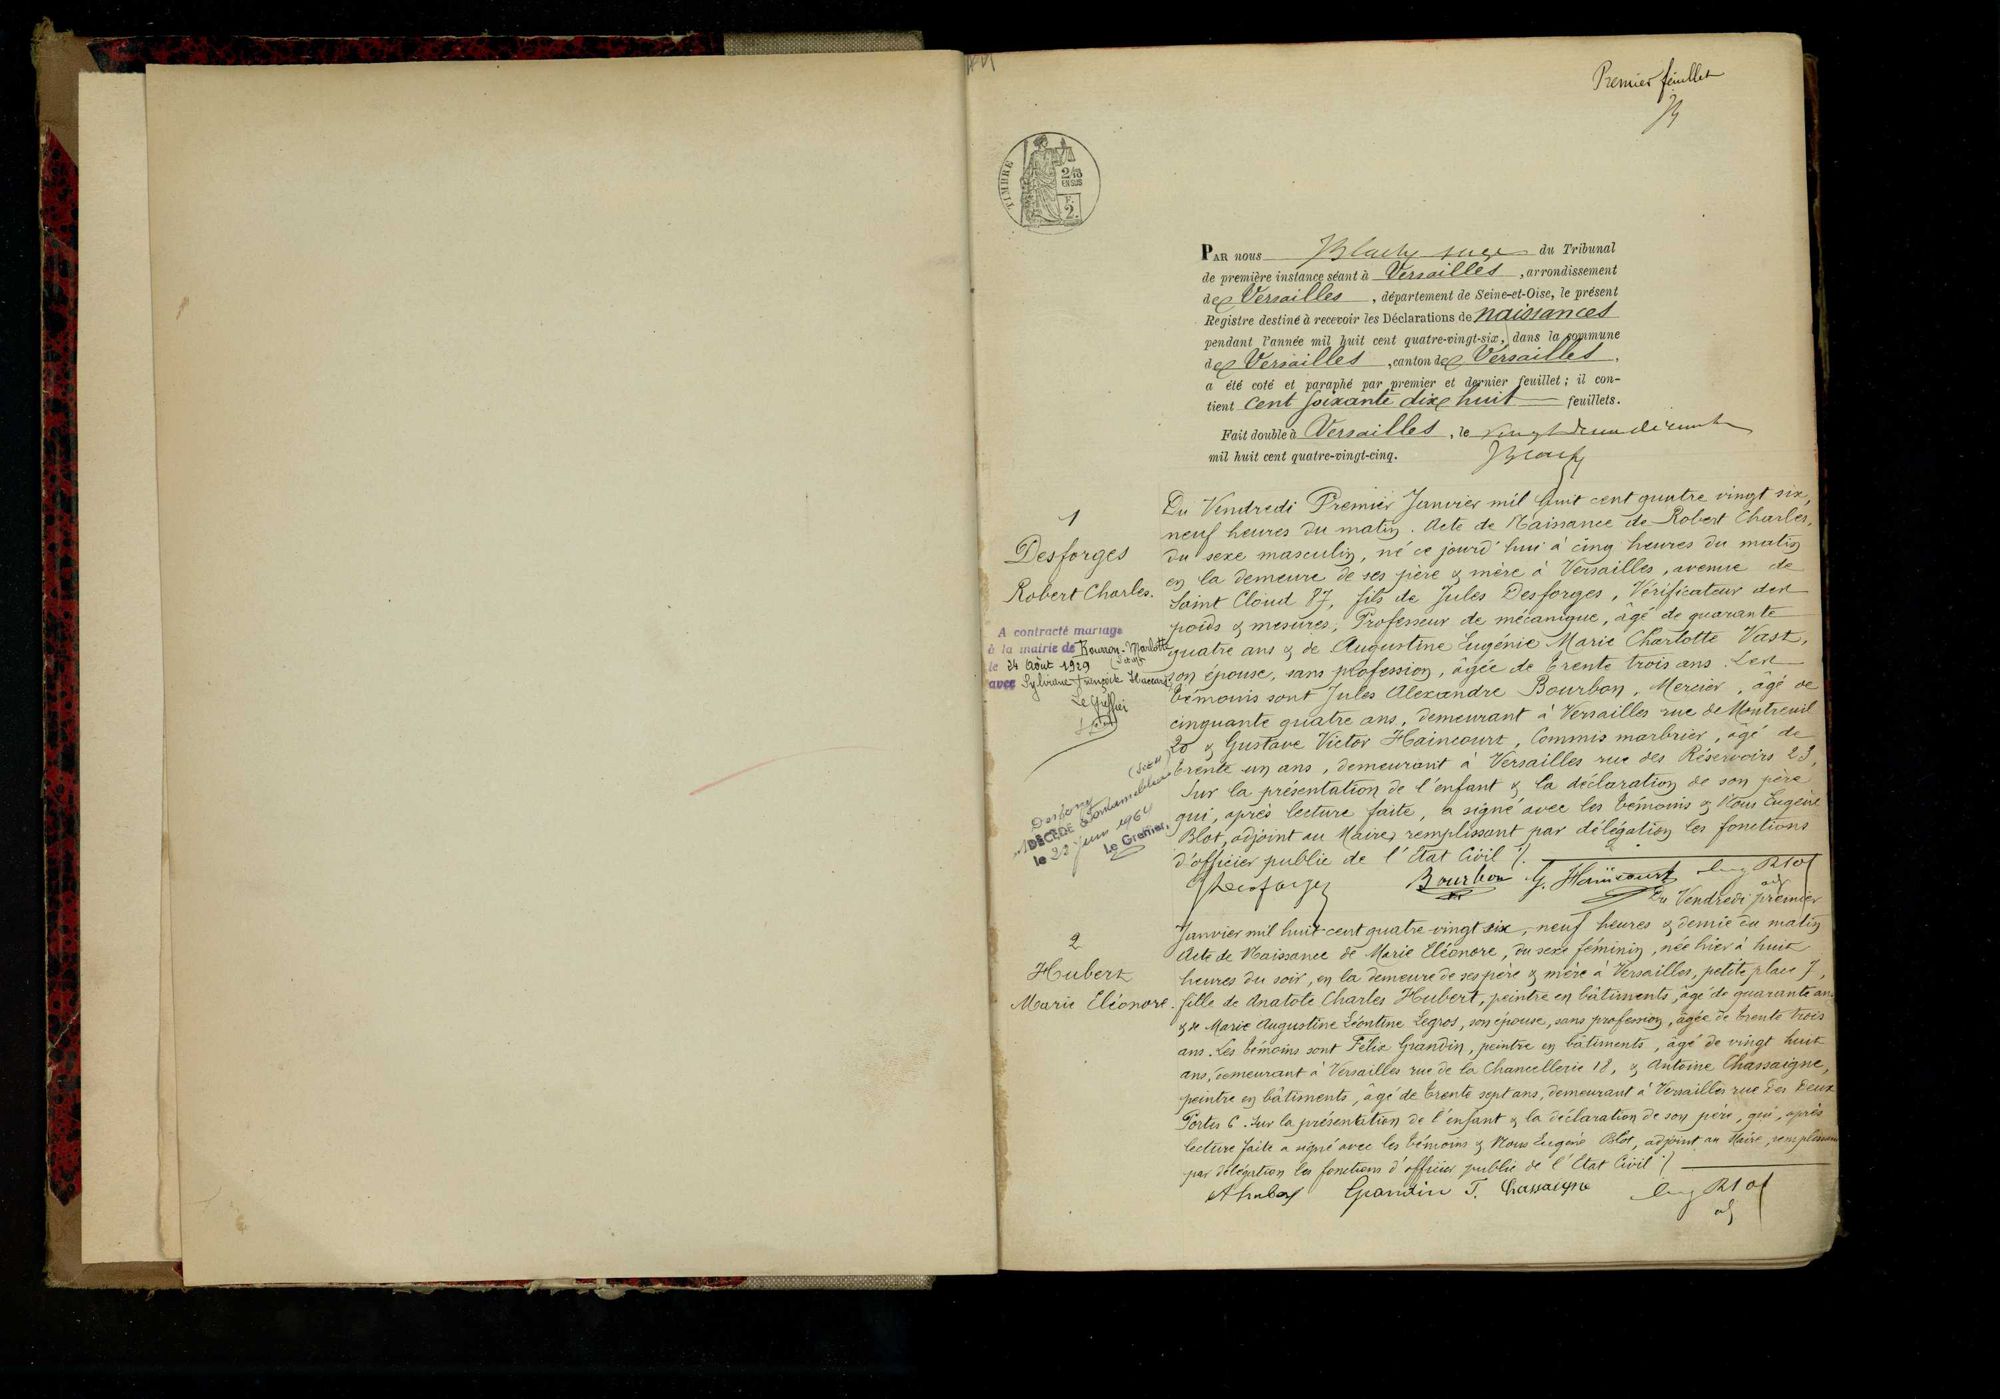 Premier feuillet
TIMBRE
2/10
EN SUS
F.
2.
PAR nous Blachy juge du Tribunal
de première instance séant à Versailles, arrondissement
de Versailles, département de Seine-et-Oise, le présent
Registre destiné à recevoir les Déclarations de naissances
pendant l'année mil huit cent quatre-vingt-six, dans la commune
de Versailles, canton de Versailles,
a été coté et paraphé par premier et dernier feuillet ; il con-
tient cent soixante dix huit feuillets.
Fait double à Versailles, le vingt deux décembre
mil huit cent quatre-vingt-cinq.
1
Desforges
Robert Charles.
A contracté mariage
à la mairie de Bourron-Marlotte
le 24 Août 1929
avec Sylviane Françoise
Le Greffier
Desforges
DÉCÉDÉ à Fontainebleau
le 22 juin 1964
Le Greffier,
Du Vendredi Premier Janvier mil huit cent quatre vingt six,
neuf heures du matin. Acte de Naissance de Robert Charles,
du sexe masculin, né ce jourd'hui à cinq heures du matin
en la demeure de ses père & mère à Versailles, avenue de
Saint Cloud 87, fils de Jules Desforges, Vérificateur des
poids & mesures, Professeur de mécanique, âgé de quarante
quatre ans & de Augustine Eugénie Marie Charlotte Vast,
son épouse, sans profession, âgée de trente trois ans. Les
témoins sont Jules Alexandre Bourbon, Mercier, âgé de
cinquante quatre ans, demeurant à Versailles rue de Montreuil
20 & Gustave Victor Haincourt, Commis marbrier, âgé de
trente un ans, demeurant à Versailles rue des Réservoirs 23,
Sur la présentation de l'enfant & la déclaration de son père
qui, après lecture faite, a signé avec les témoins & Nous Eugène
Blot, adjoint au Maire, remplissant par délégation les fonctions
d'officier public de l'Etat Civil ./.
Desforges Bourbon G. Haincourt Eug Blot
adj
Du Vendredi premier
2
Hubert
Marie Eléonore.
Janvier mil huit cent quatre vingt six, neuf heures & demie du matin
Acte de Naissance de Marie Eléonore, du sexe féminin, née hier à huit
heures du soir, en la demeure de ses père & mère à Versailles, petite place 7,
fille de Anatole Charles Hubert, peintre en bâtiments, âgé de quarante ans
& de Marie Augustine Léontine Legros, son épouse, sans profession, âgée de trente trois
ans. Les témoins sont Félix Grandin, peintre en bâtiments, âgé de vingt huit
ans, demeurant à Versailles rue de la Chancellerie 18, & Antoine Chassaigne,
peintre en bâtiments, âgé de trente sept ans, demeurant à Versailles rue des Deux
Portes 6. Sur la présentation de l'enfant & la déclaration de son père, qui, après
lecture faite a signé avec les témoins & Nous Eugène Blot, adjoint au Maire, remplissant
par délégation les fonctions d'officier public de l'Etat Civil ./.
A hubert Grandin F. Chassaigne Eug Blot
adj